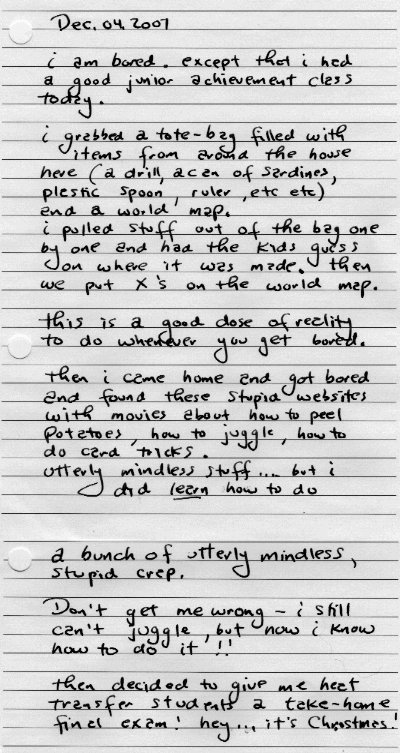 Dec. 04. 2007
i am bored. except that i had
a good junior achievement class
today.
i grabbed a tote-bag filled with
items from around the house
here (a drill, a can of sardines,
plastic spoon, ruler, etc etc)
and a world map.
i pulled stuff out of the bag one
by one and had the kids guess
on where it was made. then
we put X's on the world map.
this is a good dose of reality
to do whenever you get bored.
then i came home and got bored
and found these stupid websites
with movies about how to peel
potatoes, how to juggle, how to
do card tricks.
utterly mindless stuff... but i
did learn how to do
a bunch of utterly mindless,
stupid crap.
Don't get me wrong - i still
can't juggle, but now i know
how to do it !!
then decided to give me heat
transfer students a take-home
final exam! hey... it's Christmas!